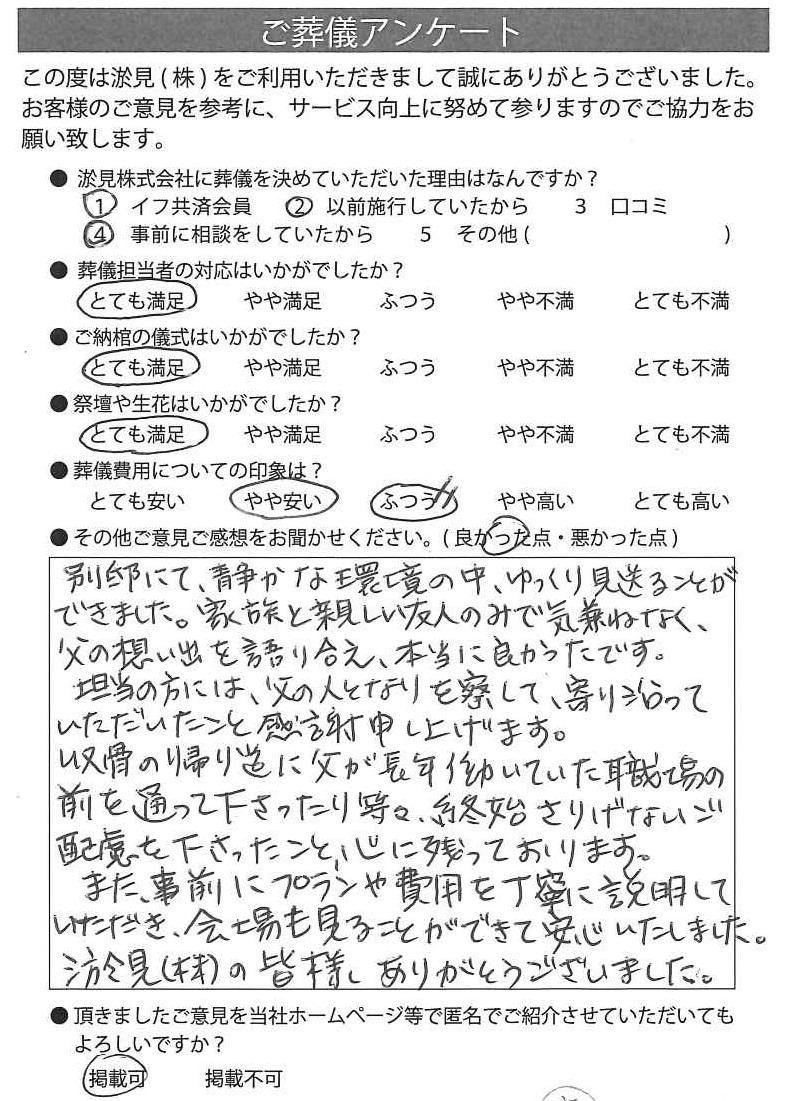 ご葬儀アンケート
この度は淤見(株)をご利用いただきまして誠にありがとうございました。
お客様のご意見を参考に、サービス向上に努めて参りますのでご協力をお
願い致します。
● 淤見株式会社に葬儀を決めていただいた理由はなんですか？
1 イフ共済会員 2 以前施行していたから 3 口コミ
4 事前に相談をしていたから 5 その他( )
● 葬儀担当者の対応はいかがでしたか？
とても満足 やや満足 ふつう やや不満 とても不満
● ご納棺の儀式はいかがでしたか？
とても満足 やや満足 ふつう やや不満 とても不満
● 祭壇や生花はいかがでしたか？
とても満足 やや満足 ふつう やや不満 とても不満
● 葬儀費用についての印象は？
とても安い やや安い ふつう やや高い とても高い
● その他ご意見ご感想をお聞かせください。(良かった点・悪かった点)
別邸にて、静かな環境の中、ゆっくり見送ることが
できました。家族と親しい友人のみで気兼ねなく、
父の想い出を語り合え、本当に良かったです。
担当の方には、父の人となりを察して、寄り沿って
いただいたこと感謝申し上げます。
収骨の帰り道に父が長年働いていた職場の
前を通って下さったり等々、終始さりげないご
配慮を下さったこと、心に残っております。
また、事前にプランや費用を丁寧に説明して
いただき、会場も見ることができて安心いたしました。
淤見(株)の皆様、ありがとうございました。
● 頂きましたご意見を当社ホームページ等で匿名でご紹介させていただいても
よろしいですか？
掲載可 掲載不可